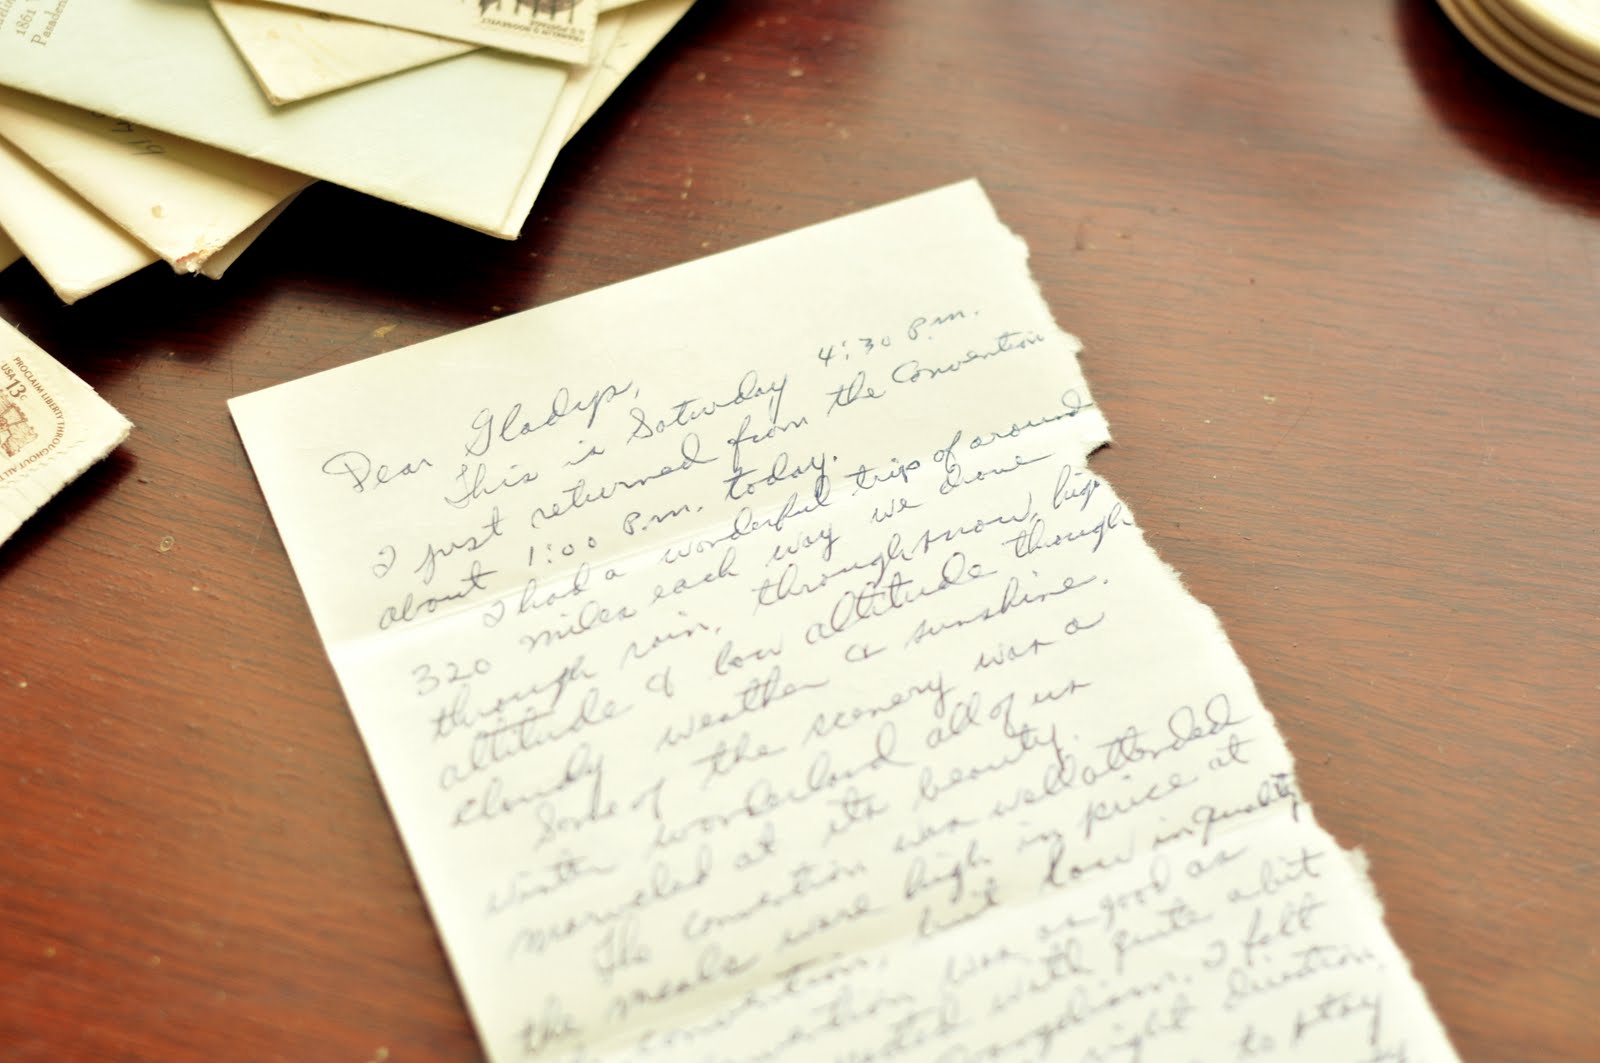 1861
Pasaden
FRANKLIN D. ROOSEVELT
U.S. POSTAGE
19
PROCLAIM LIBERTY THROUGHOUT ALL
USA 13c
4:30 P.m.
Dear Gladys,
This is Saturday
I just returned from the Convention
about 1:00 P.m. today.
I had a wonderful trip of around
320 miles each way we drove
through rain, through snow, high
altitude & low altitude though
cloudy weather & sunshine.
Some of the scenery was a
winter wonderland all of us
marveled at its beauty.
The convention was well attended
the meals were high in price at
convention, but low in quality
convention was as good as
with quite a bit
I felt
right direction.
to stay